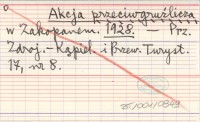 Akcja przeciwgruźlicza
w Zakopanem. 1928. — Prz.
Zdroj.-Kąpiel. i Przew. Turyst.
17, nr 8.